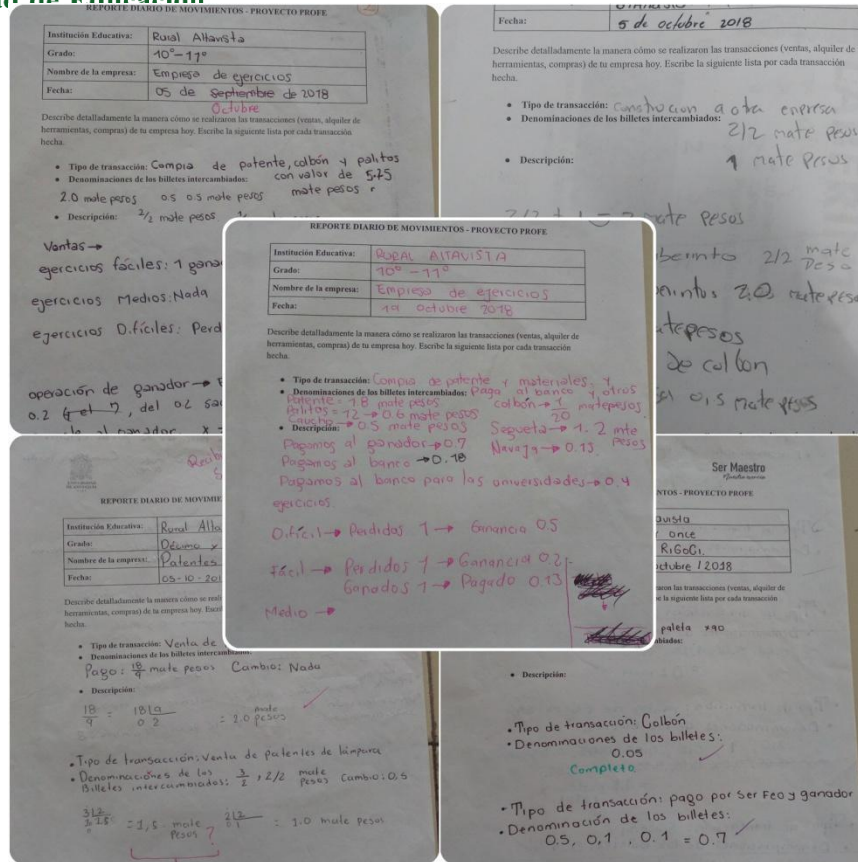 REPORTE DIARIO DE MOVIMIENTOS - PROYECTO PROFE
Institución Educativa: Rural Altavista
Grado: 10° - 11°
Nombre de la empresa: Empresa de ejercicios
Fecha: 05 de Septiembre de 2018
Octubre
Describe detalladamente la manera cómo se realizaron las transacciones (ventas, alquiler de
herramientas, compras) de tu empresa hoy. Escribe la siguiente lista por cada transacción
hecha.
• Tipo de transacción: Compra de patente, colbón y palitos
• Denominaciones de los billetes intercambiados: con valor de 5.75
2.0 mate pesos 0.5 0.5 mate pesos mate pesos
• Descripción: 2/2 mate pesos
Ventas →
ejercicios fáciles: 1 gana
ejercicios Medios: Nada
ejercicios Difíciles: Perd
operación de ganador →
0.2 , del 02
Fecha: 5 de octubre 2018
Describe detalladamente la manera cómo se realizaron las transacciones (ventas, alquiler de
herramientas, compras) de tu empresa hoy. Escribe la siguiente lista por cada transacción
hecha.
• Tipo de transacción: Construcion a otra enpresa
• Denominaciones de los billetes intercambiados:
2/2 mate pesos
• Descripción: 1 mate Pesos
mate pesos
berinto 2/2 mate Peso
rintos 2.0 matepeso
tepesos
de colbon
0,5 mate pesos
REPORTE DIARIO DE MOVIMIENTOS - PROYECTO PROFE
Institución Educativa: RURAL ALTAVISTA
Grado: 10° - 11°
Nombre de la empresa: Empresa de ejercicios
Fecha: 19 octubre 2018
Describe detalladamente la manera cómo se realizaron las transacciones (ventas, alquiler de
herramientas, compras) de tu empresa hoy. Escribe la siguiente lista por cada transacción
hecha.
• Tipo de transacción: Compra de patente y materiales y
• Denominaciones de los billetes intercambiados: Paga al banco y otros
Patente = 1.8 mate pesos colbón → 1/20 matepesos
Palitos = 12 → 0.6 mate pesos
Caucho → 0.5 mate pesos Segueta → 1.2 mate pesos
• Descripción:
Pagamos al ganador → 0.7 Navaja → 0.13
Pagamos al banco → 0.18
Pagamos al banco para las universidades → 0.4
ejercicios.
Difícil → Perdidos 1 → Ganancia 05
Fácil → Perdidos 1 → Ganancia 0.2
Ganados 1 → Pagado 0.13
Medio →
REPORTE DIARIO DE MOVIMIE
Institución Educativa: Rural Alta
Grado: Décimo y
Nombre de la empresa: Patentes
Fecha: 05-10-201
Describe detalladamente la manera cómo se reali
herramientas, compras) de tu empresa hoy. Escri
hecha.
• Tipo de transacción: Venta de
• Denominaciones de los billetes intercambiados:
Pago: 18/9 mate pesos Cambio: Nada
• Descripción:
18/9 = 18 |9 0 2 = 2.0 mate pesos
• Tipo de transacción: Venta de patentes de lámpara
• Denominaciones de los Billetes intercambiados: 3/2, 2/2 mate pesos Cambio: 0.5
= 1,5 mate pesos ? = 1.0 mate pesos
Ser Maestro
NTOS - PROYECTO PROFE
avista
once
RiGoCi.
octubre / 2018
aron las transacciones (ventas, alquiler de
e la siguiente lista por cada transacción
paleta x90
mbiados:
• Descripción:
• Tipo de transacción: Colbón
• Denominaciones de los billetes:
0.05
Completo
• Tipo de transacción: pago por ser Feo y ganador
• Denominación de los billetes:
0.5, 0,1 , 0.1 = 0.7